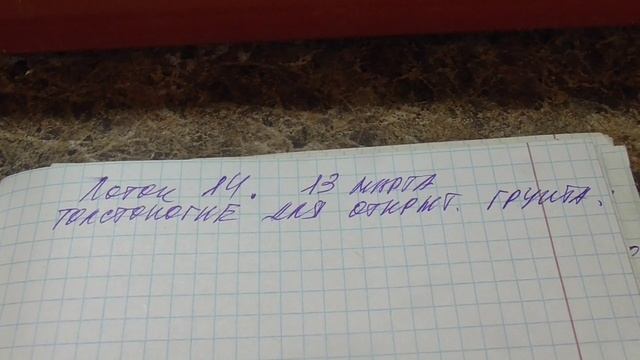 Лоток 14. 13 марта
толстоногие для открыт. грунта.